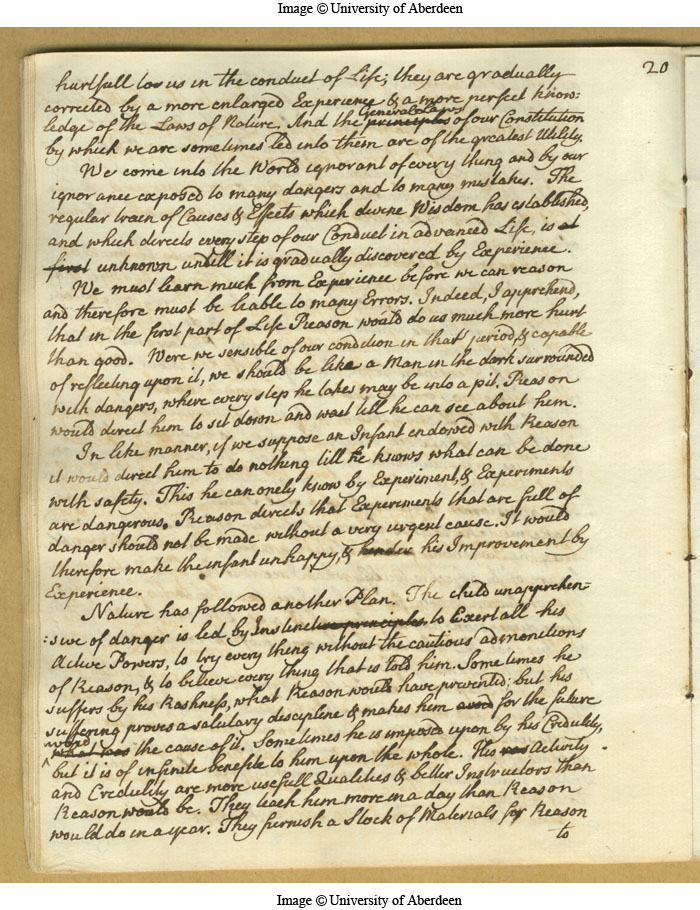 Image © University of Aberdeen
20
hurtfull to us in the conduct of Life; they are gradually
corrected by a more enlarged Experience & a more perfect know=
General Laws
ledge of the Laws of Nature. And the principles of our Constitution
by which we are sometimes led into them are of the greatest Utility.
We come into the World ignorant of every thing and by our
ignorance exposed to many dangers and to many mistakes. The
regular train of Causes & Effects which divine Wisdom has established,
and which directs every step of our Conduct in advanced Life, is at
first unknown untill it is gradually discovered by Experience.
We must learn much from Experience before we can reason
and therefore must be liable to many Errors. Indeed, I apprehend,
that in the first part of Life Reason would do us much more hurt
than good. Were we sensible of our condition in that period, & capable
of reflecting upon it, we should be like a Man in the dark surrounded
with dangers, where every step he takes may be into a pit. Reason
would direct him to sit down and wait till he can see about him.
In like manner, if we suppose an Infant endowed with Reason
it would direct him to do nothing till he knows what can be done
with safety. This he can onely know by Experiment, & Experiments
are dangerous. Reason directs that Experiments that are full of
danger should not be made without a very urgent cause. It would
therefore make the infant unhappy, & hinder his Improvement by
Experience.
Nature has followed another Plan. The child unapprehen=
:sive of danger is led by Instinctive principles to Exert all his
Active Powers, to try every thing without the cautious admonitions
of Reason, & to believe every thing that is told him. Sometimes he
suffers by his Rashness, what Reason would have prevented; but his
suffering proves a salutary discipline & makes him avoid for the future
avoid
what was the cause of it. Sometimes he is imposed upon by his Credulity,
but it is of infinite benefite to him upon the whole. His Activity
and Credulity are more usefull Qualities & better Instructors than
Reason would be. They teach him more in a day than Reason
would do in a year. They furnish a Stock of Materials for Reason
to
Image © University of Aberdeen